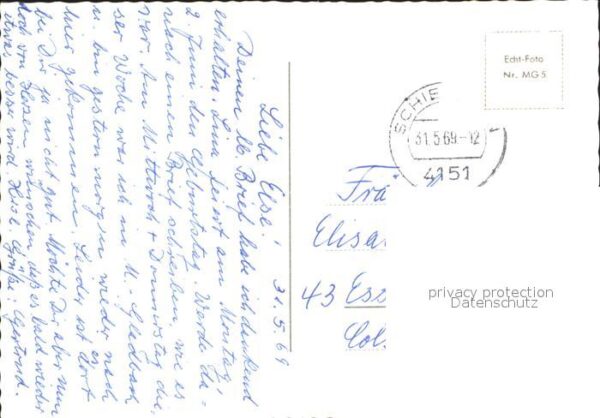 31.5.69
Liebe Else!
Deinen lb. Brief habe ich dankend
erhalten. Lina feiert am Montag,
2. Juni den Geburtstag. Werde Ihr
noch einen Brief schreiben, wie es
war. Am Mittwoch + Donnerstag die-
ser Woche war ich in M.-Gladbach
u. bin gestern morgen wieder nach
hier gekommen. Leider ist dort
bei Dir ja nicht gut. Möchte Dir aber nun
doch von Herzen wünschen, daß es bald wieder
etwas besser wird. Herzl. Grüße: Gertrud.
Echt-Foto
Nr. MG 5
SCHIE
31.5.69-12
4151
Frä
Elisa
43 Ess
privacy protection
Datenschutz